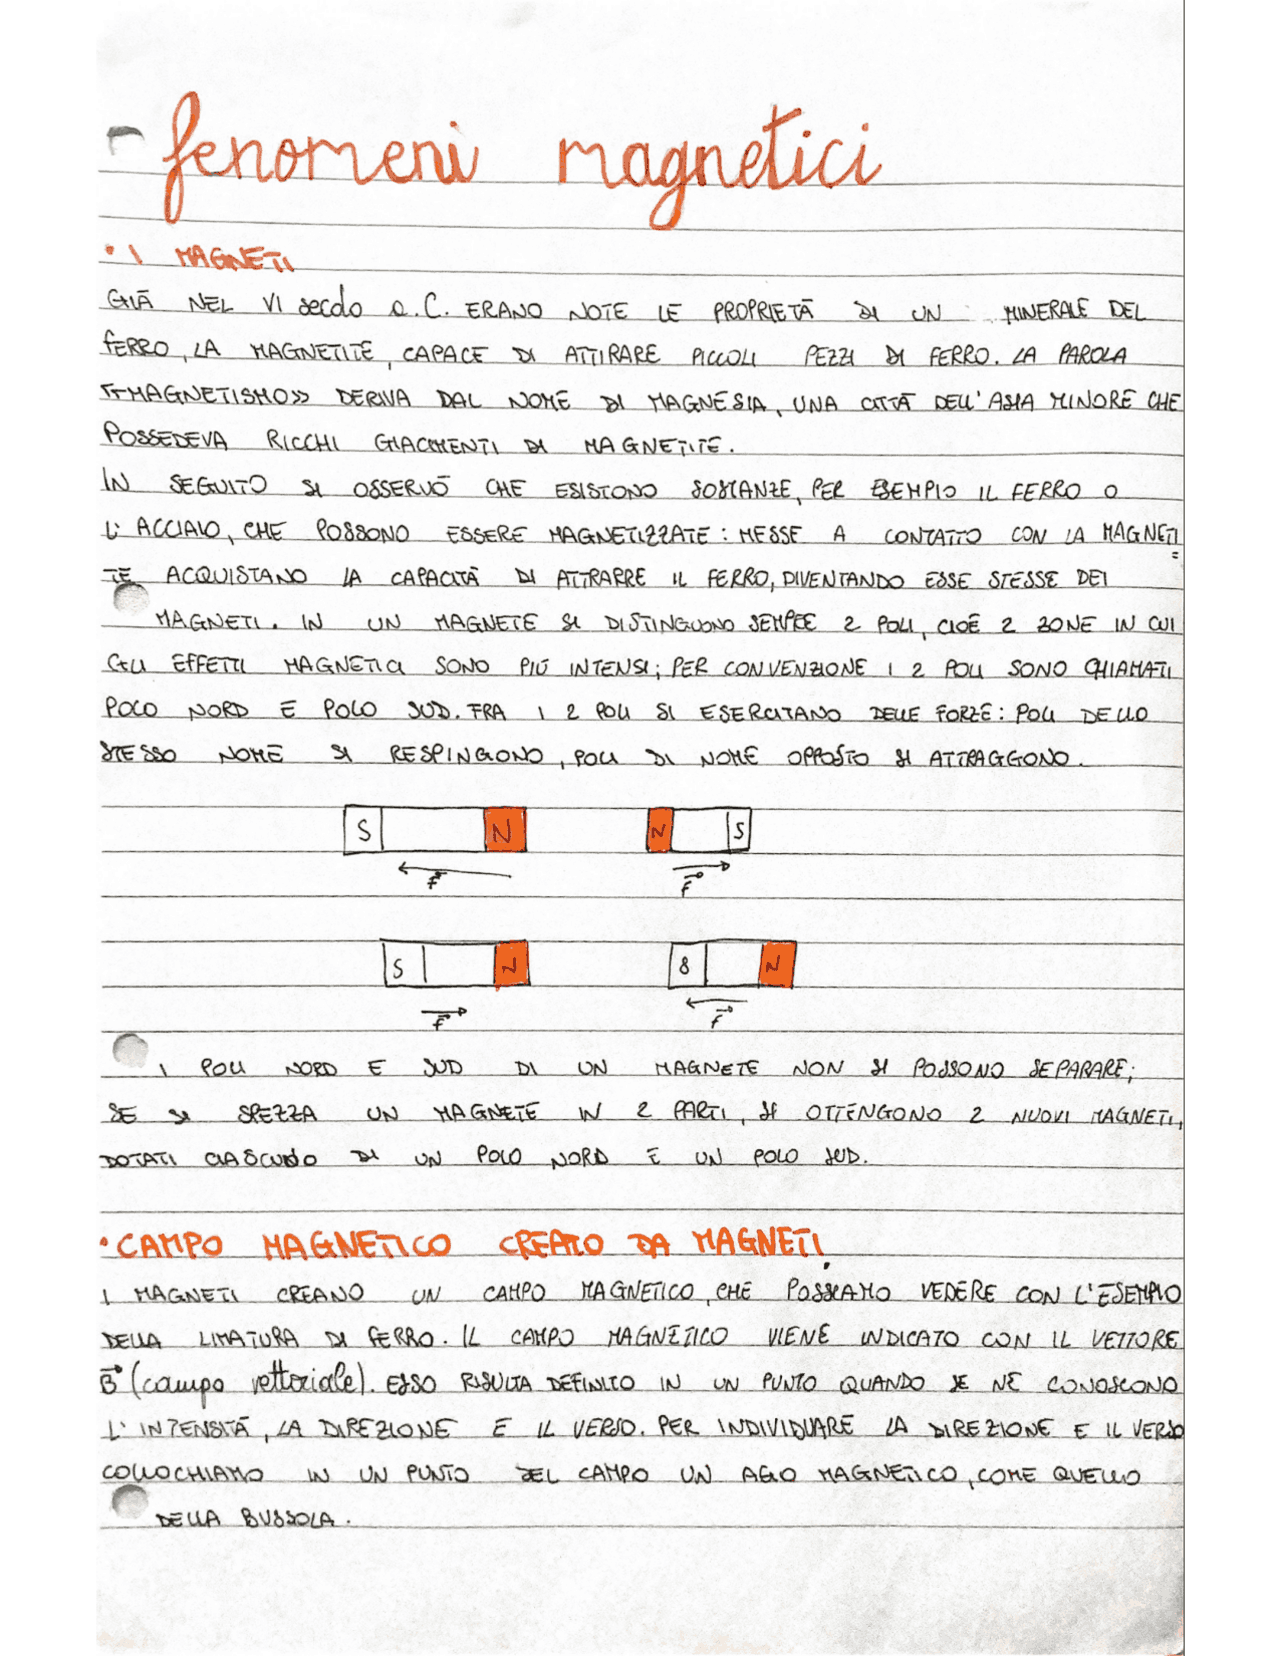 fenomeni magnetici
• I MAGNETI
GIÀ NEL VI secolo a.C. ERANO NOTE LE PROPRIETÀ DI UN MINERALE DEL
FERRO, LA MAGNETITE, CAPACE DI ATTIRARE PICCOLI PEZZI DI FERRO. LA PAROLA
«MAGNETISMO» DERIVA DAL NOME DI MAGNESIA, UNA CITTÀ DELL'ASIA MINORE CHE
POSSEDEVA RICCHI GIACIMENTI DI MAGNETITE.
IN SEGUITO SI OSSERVÒ CHE ESISTONO SOSTANZE, PER ESEMPIO IL FERRO O
L'ACCIAIO, CHE POSSONO ESSERE MAGNETIZZATE: MESSE A CONTATTO CON LA MAGNETI=
TE ACQUISTANO LA CAPACITÀ DI ATTRARRE IL FERRO, DIVENTANDO ESSE STESSE DEI
MAGNETI. IN UN MAGNETE SI DISTINGUONO SEMPRE 2 POLI, CIOÈ 2 ZONE IN CUI
GLI EFFETTI MAGNETICI SONO PIÙ INTENSI; PER CONVENZIONE I 2 POLI SONO CHIAMATI
POLO NORD E POLO SUD. FRA I 2 POLI SI ESERCITANO DELLE FORZE: POLI DELLO
STESSO NOME SI RESPINGONO, POLI DI NOME OPPOSTO SI ATTRAGGONO.
S N N S
F F
S N S N
F F
I POLI NORD E SUD DI UN MAGNETE NON SI POSSONO SEPARARE;
SE SI SPEZZA UN MAGNETE IN 2 PARTI, SI OTTENGONO 2 NUOVI MAGNETI,
DOTATI CIASCUNO DI UN POLO NORD E UN POLO SUD.
• CAMPO MAGNETICO CREATO DA MAGNETI
I MAGNETI CREANO UN CAMPO MAGNETICO, CHE POSSIAMO VEDERE CON L'ESEMPIO
DELLA LIMATURA DI FERRO. IL CAMPO MAGNETICO VIENE INDICATO CON IL VETTORE
B⃗ (campo vettoriale). ESSO RISULTA DEFINITO IN UN PUNTO QUANDO SE NE CONOSCONO
L'INTENSITÀ, LA DIREZIONE E IL VERSO. PER INDIVIDUARE LA DIREZIONE E IL VERSO
COLLOCHIAMO IN UN PUNTO DEL CAMPO UN AGO MAGNETICO, COME QUELLO
DELLA BUSSOLA.